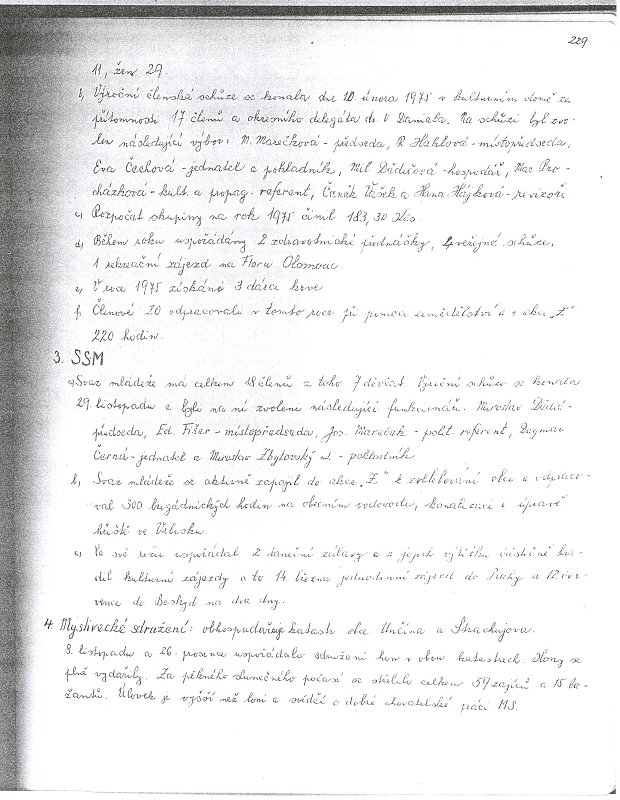 229
11, žen 29.
b, Výroční členská schůze se konala dne 10. února 1975 v kulturním domě za
přítomnosti 17 členů a okresního delegáta ds. V Daniela. Na schůzi byl zvo-
len následující výbor: M. Marečková - předseda, R Hahlová - místopředseda,
Eva Čechová - jednatel a pokladník, Mil Dědičová - hospodář, Mar Pro-
cházková - kult. a propag. referent, Čeněk Vašek a Hana Hájková - revizoři
c, Rozpočet skupiny na rok 1975 činil 183,30 Kčs.
d, Během roku uspořádány 2 zdravotnické přednášky, 4 veřejné schůze,
1 rekreační zájezd na Floru Olomouc
e, V roce 1975 získáni 3 dárci krve
f, Členové ZO odpracovali v tomto roce při pomoci zemědělství a v akci „Z"
220 hodin.
3. SSM
a, Svaz mládeže má celkem 18 členů z toho 7 děvčat. Výroční schůze se konala
29. listopadu a byli na ní zvoleni následující funkcionáři. Miroslav Dědič-
předseda, Ed. Fišer - místopředseda, Jos. Mareček - polit. referent, Dagmar
Černá - jednatel a Miroslav Zbytovský ml. - pokladník
b, Svaz mládeže se aktivně zapojil do akce „Z" k zvelebování obce a odpraco-
val 300 brigádnických hodin na obecním vodovodu, kanalizaci a úpravě
hřiště ve
c, Ve své režii uspořádal 2 taneční zábavy a z jejich výtěžku částečně hra-
dil kulturní zájezdy a to 14. března jednodenní zájezd do Prahy a 12. čer-
vence do Beskyd na dva dny.
4. Myslivecké sdružení: obhospodařuje katastr obce Unčína a Strachujova.
8. listopadu a 26. prosince uspořádalo sdružení hon v obou katastrech. Hony se
plně vydařily. Za pěkného slunečného počasí se střelilo celkem 59 zajíců a 15 ba-
žantů. Úlovek je vyšší než loni a svědčí o dobré chovatelské práci MS.